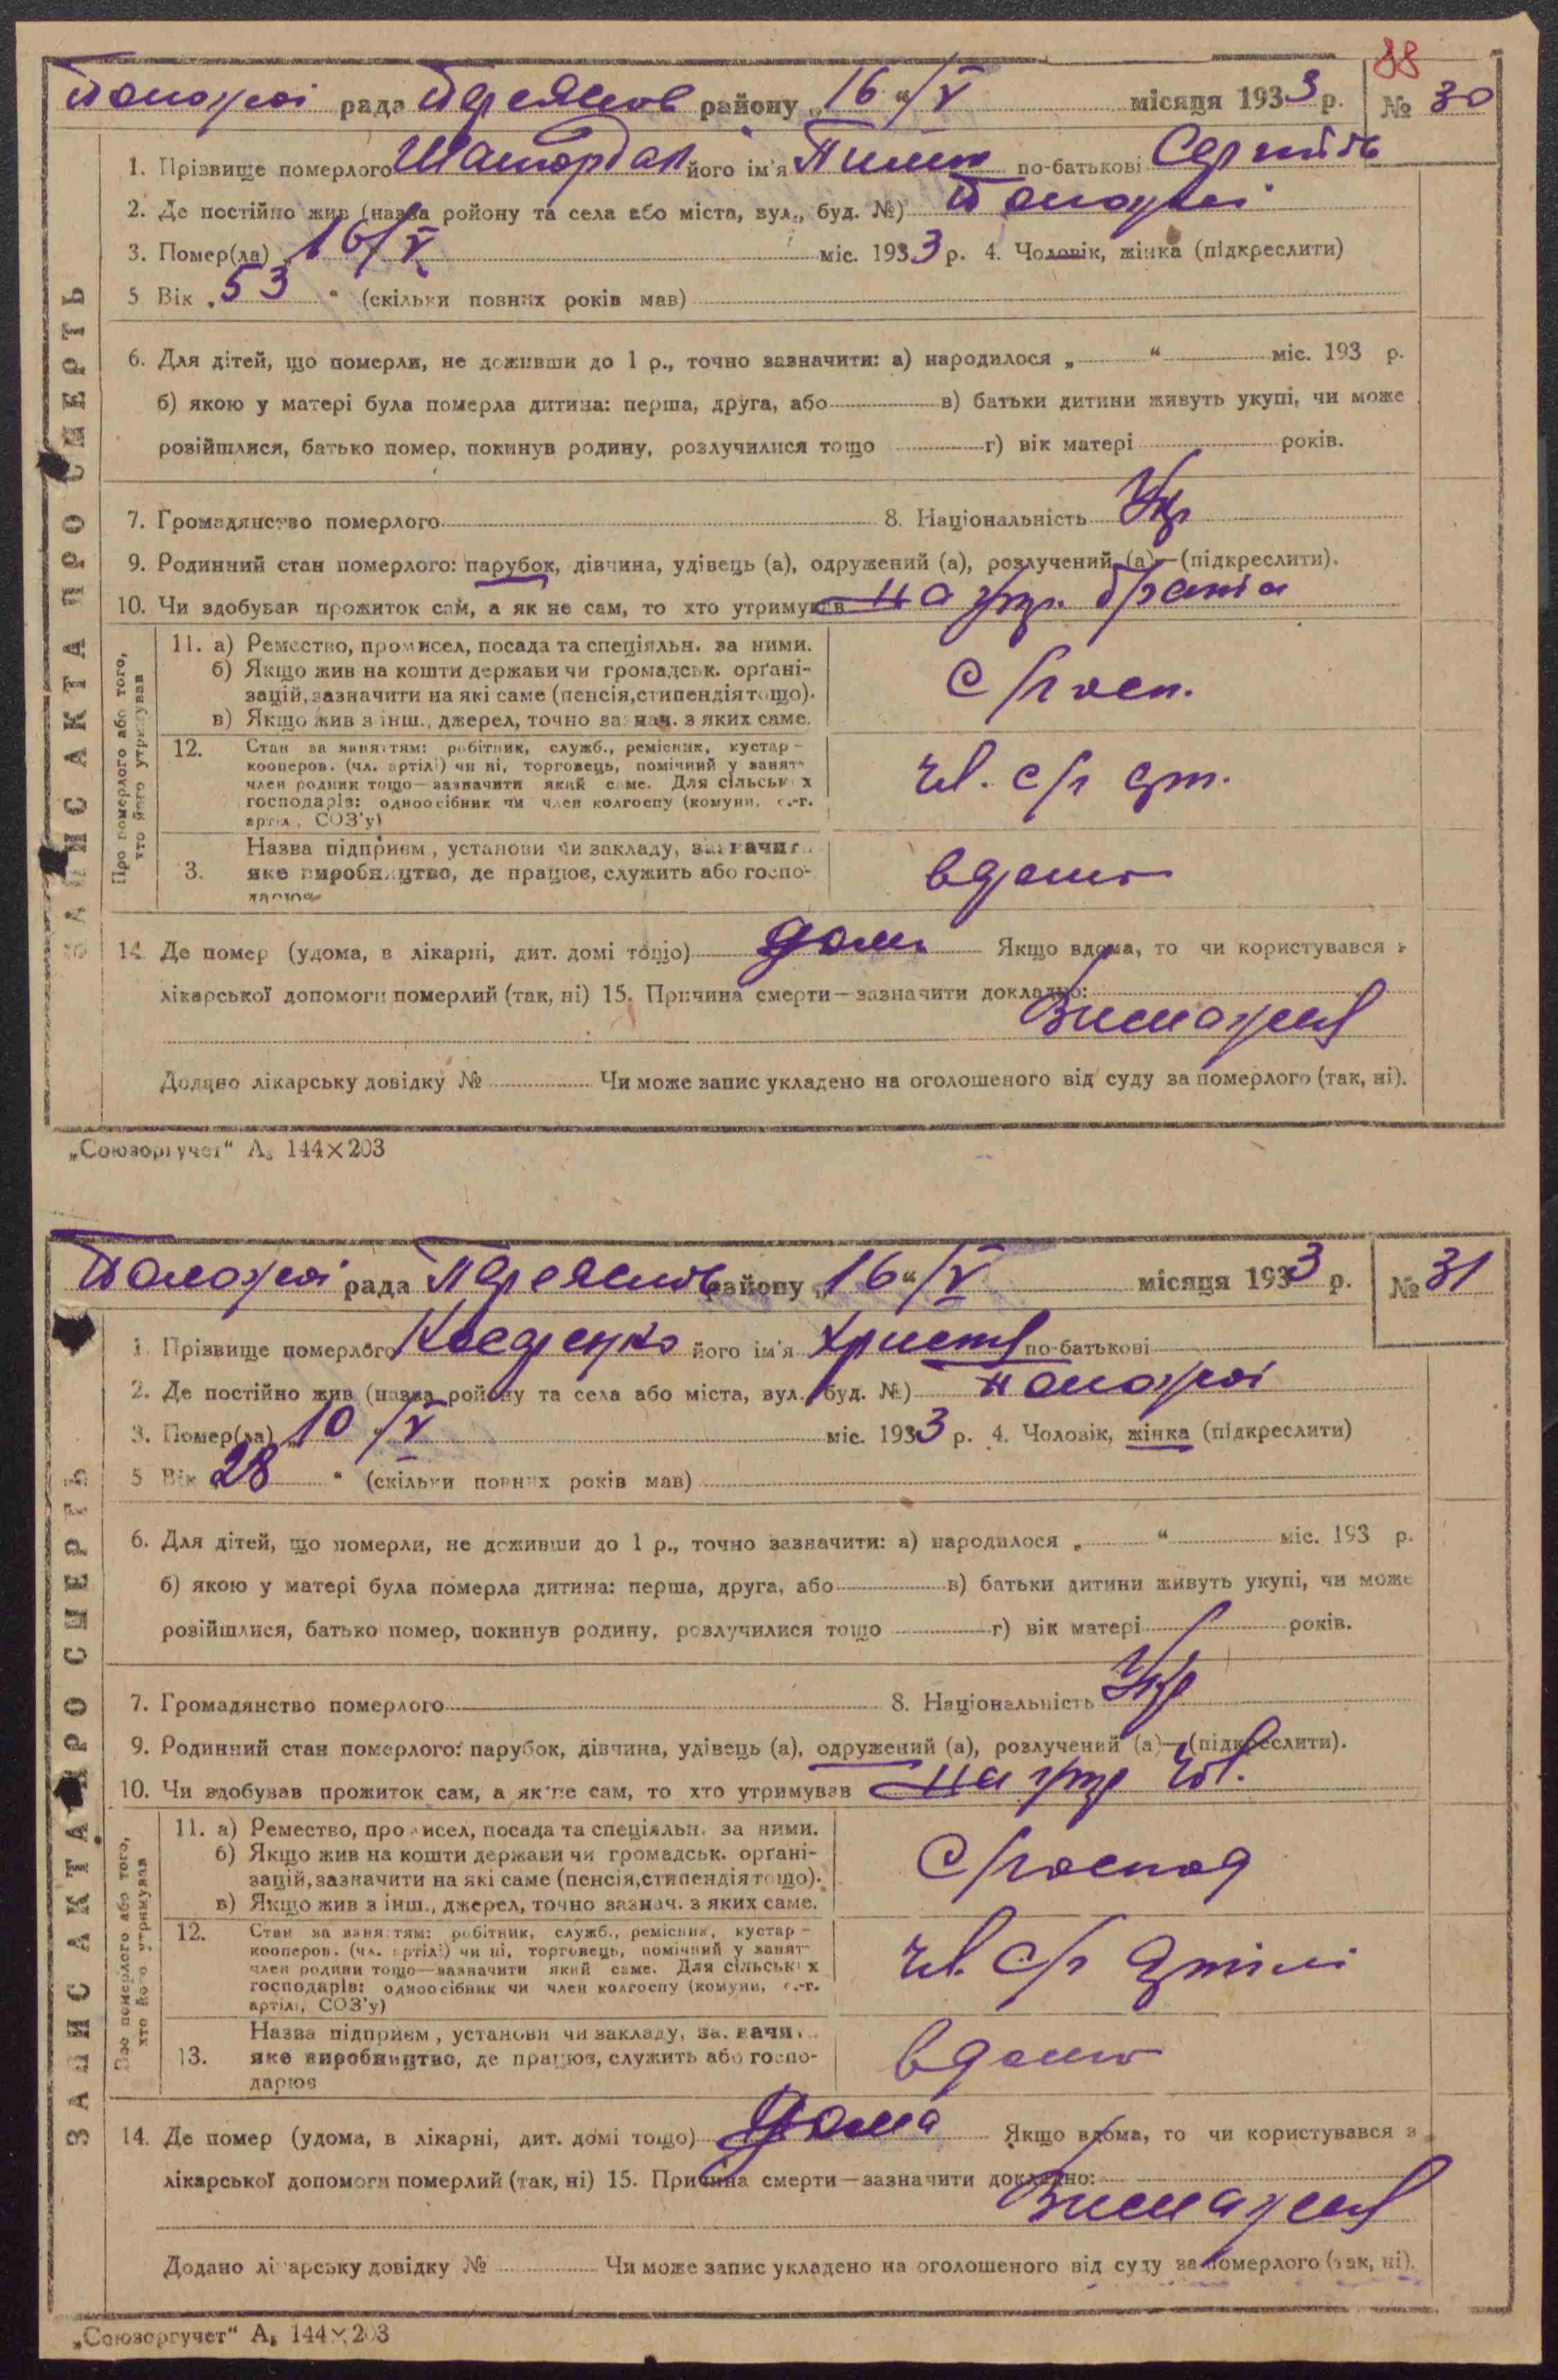 88
рада район­у „16“/V місяця 1933 р. № 30
ЗАПИС АКТА ПРО СМЕРТЬ
1. Прізвище померлого його ім'я Пилип по-батькові
2. Де постійно жив (назва ройону та села або міста, вул., буд. №)
3. Помер(ла) „16/V міс. 1933 р. 4. Чоловік, жінка (підкреслити)
5 Вік „53“ (скільки повних років мав)
6. Для дітей, що померли, не доживши до 1 р., точно зазначити: а) народилося „ “ міс. 193 р.
б) якою у матері була померла дитина: перша, друга, або в) батьки дитини живуть укупі, чи може
розійшлися, батько помер, покинув родину, розлучилися тощо г) вік матері років.
7. Громадянство померлого 8. Національність Укр
9. Родинний стан померлого: парубок, дівчина, удівець (а), одружений (а), розлучений (а)—(підкреслити).
10. Чи здобував прожиток сам, а як не сам, то хто утримував на утр. брата
Про померлого або того, хто його утримував
11. а) Ремество, промисел, посада та спеціяльн. за ними.
б) Якщо жив на кошти держави чи громадськ. орґані-
зацій, зазначити на які саме (пенсія, стипендія тощо).
в) Якщо жив з інш., джерел, точно зазнач. з яких саме.
с/госп.
12. Стан за заняттям: робітник, служб., ремісник, кустар –
кооперов. (чл. артілі) чи ні, торговець, помічний у занят-
член родини тощо—зазначити який саме. Для сільських
господарів: одноосібник чи член колгоспу (комуни, с.-г.
артіл., СОЗ'у)
чл. с/г арт.
3. Назва підприєм, установи чи закладу, зазначити
яке виробництво, де працює, служить або госпо-
дарює
вдома
14. Де помер (удома, в лікарні, дит. домі тощо) дома Якщо вдома, то чи користувався з
лікарської допомоги померлий (так, ні) 15. Причина смерти—зазначити докладно:
Виснаження
Додано лікарську довідку № Чи може запис укладено на оголошеного від суду за померлого (так, ні).
„Союзоргучет“ А₅ 144×203
рада району „16“/V місяця 1933 р. № 31
ЗАПИС АКТА ПРО СМЕРТЬ
1. Прізвище померлого його ім'я Христя по-батькові
2. Де постійно жив (назва ройону та села або міста, вул., буд. №)
3. Помер(ла) „10“/V міс. 1933 р. 4. Чоловік, жінка (підкреслити)
5 Вік 28 “ (скільки повних років мав)
6. Для дітей, що померли, не доживши до 1 р., точно зазначити: а) народилося „ “ міс. 193 р.
б) якою у матері була померла дитина: перша, друга, або в) батьки дитини живуть укупі, чи може
розійшлися, батько помер, покинув родину, розлучилися тощо г) вік матері років.
7. Громадянство померлого 8. Національність Укр
9. Родинний стан померлого: парубок, дівчина, удівець (а), одружений (а), розлучений (а)—(підкреслити).
10. Чи здобував прожиток сам, а як не сам, то хто утримував на утр чол.
Про померлого або того, хто його утримував
11. а) Ремество, промисел, посада та спеціяльн. за ними.
б) Якщо жив на кошти держави чи громадськ. орґані-
зацій, зазначити на які саме (пенсія, стипендія тощо).
в) Якщо жив з інш., джерел, точно зазнач. з яких саме.
с/господ
12. Стан за заняттям: робітник, служб., ремісник, кустар –
кооперов. (чл. артілі) чи ні, торговець, помічний у занят-
член родини тощо—зазначити який саме. Для сільських
господарів: одноосібник чи член колгоспу (комуни, с.-г.
артілі, СОЗ'у)
чл. с/г артілі
13. Назва підприєм, установи чи закладу, зазначити
яке виробництво, де працює, служить або госпо-
дарює
вдома
14. Де помер (удома, в лікарні, дит. домі тощо) дома Якщо вдома, то чи користувався з
лікарської допомоги померлий (так, ні) 15. Причина смерти—зазначити докладно:
Виснаження
Додано лікарську довідку № Чи може запис укладено на оголошеного від суду за померлого (так, ні).
„Союзоргучет“ А₅ 144×203